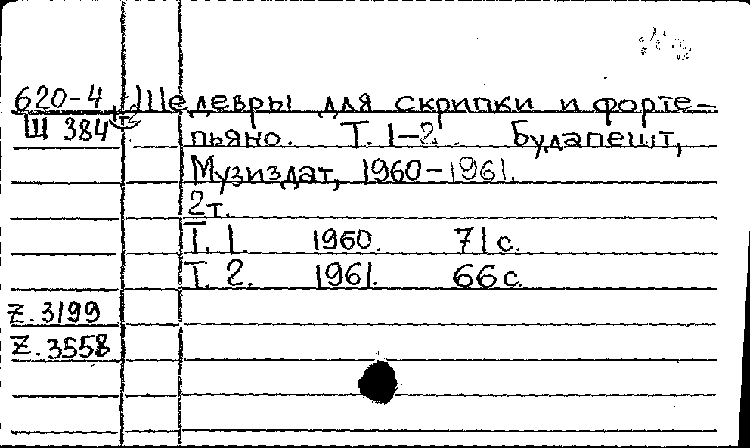 620-4 Шедевры для скрипки и форте-
Ш 384 пьяно. Т. 1-2. Будапешт,
Музиздат, 1960-1961.
2т.
Т. 1. 1960. 71 с.
Т. 2. 1961. 66 с.
Z.3199
Z.3558